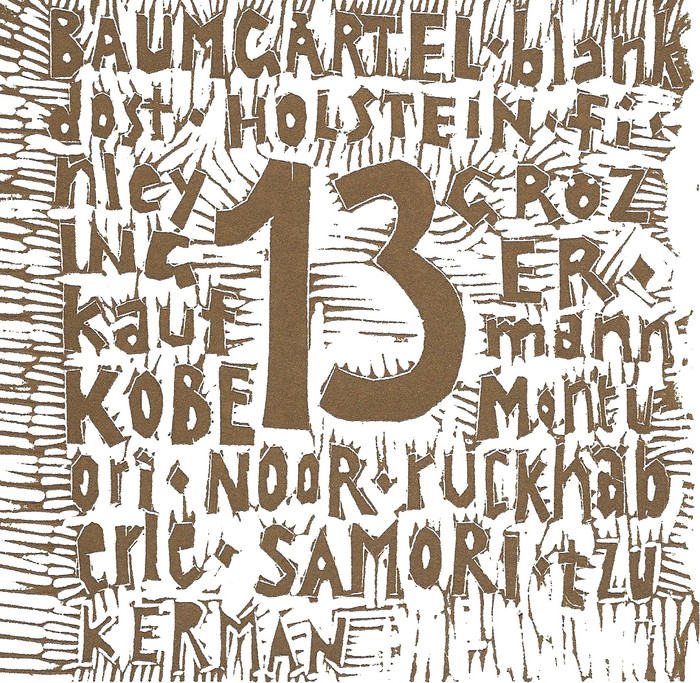 BAUMGÄRTEL·blank
dost·HOLSTEIN·fi·
nley 13 GRöZ
ING ER·
kauf mann
KOBE Montu
ori·NOOR·ruckhäb
erle·SAMORI·tzu
KERMAN